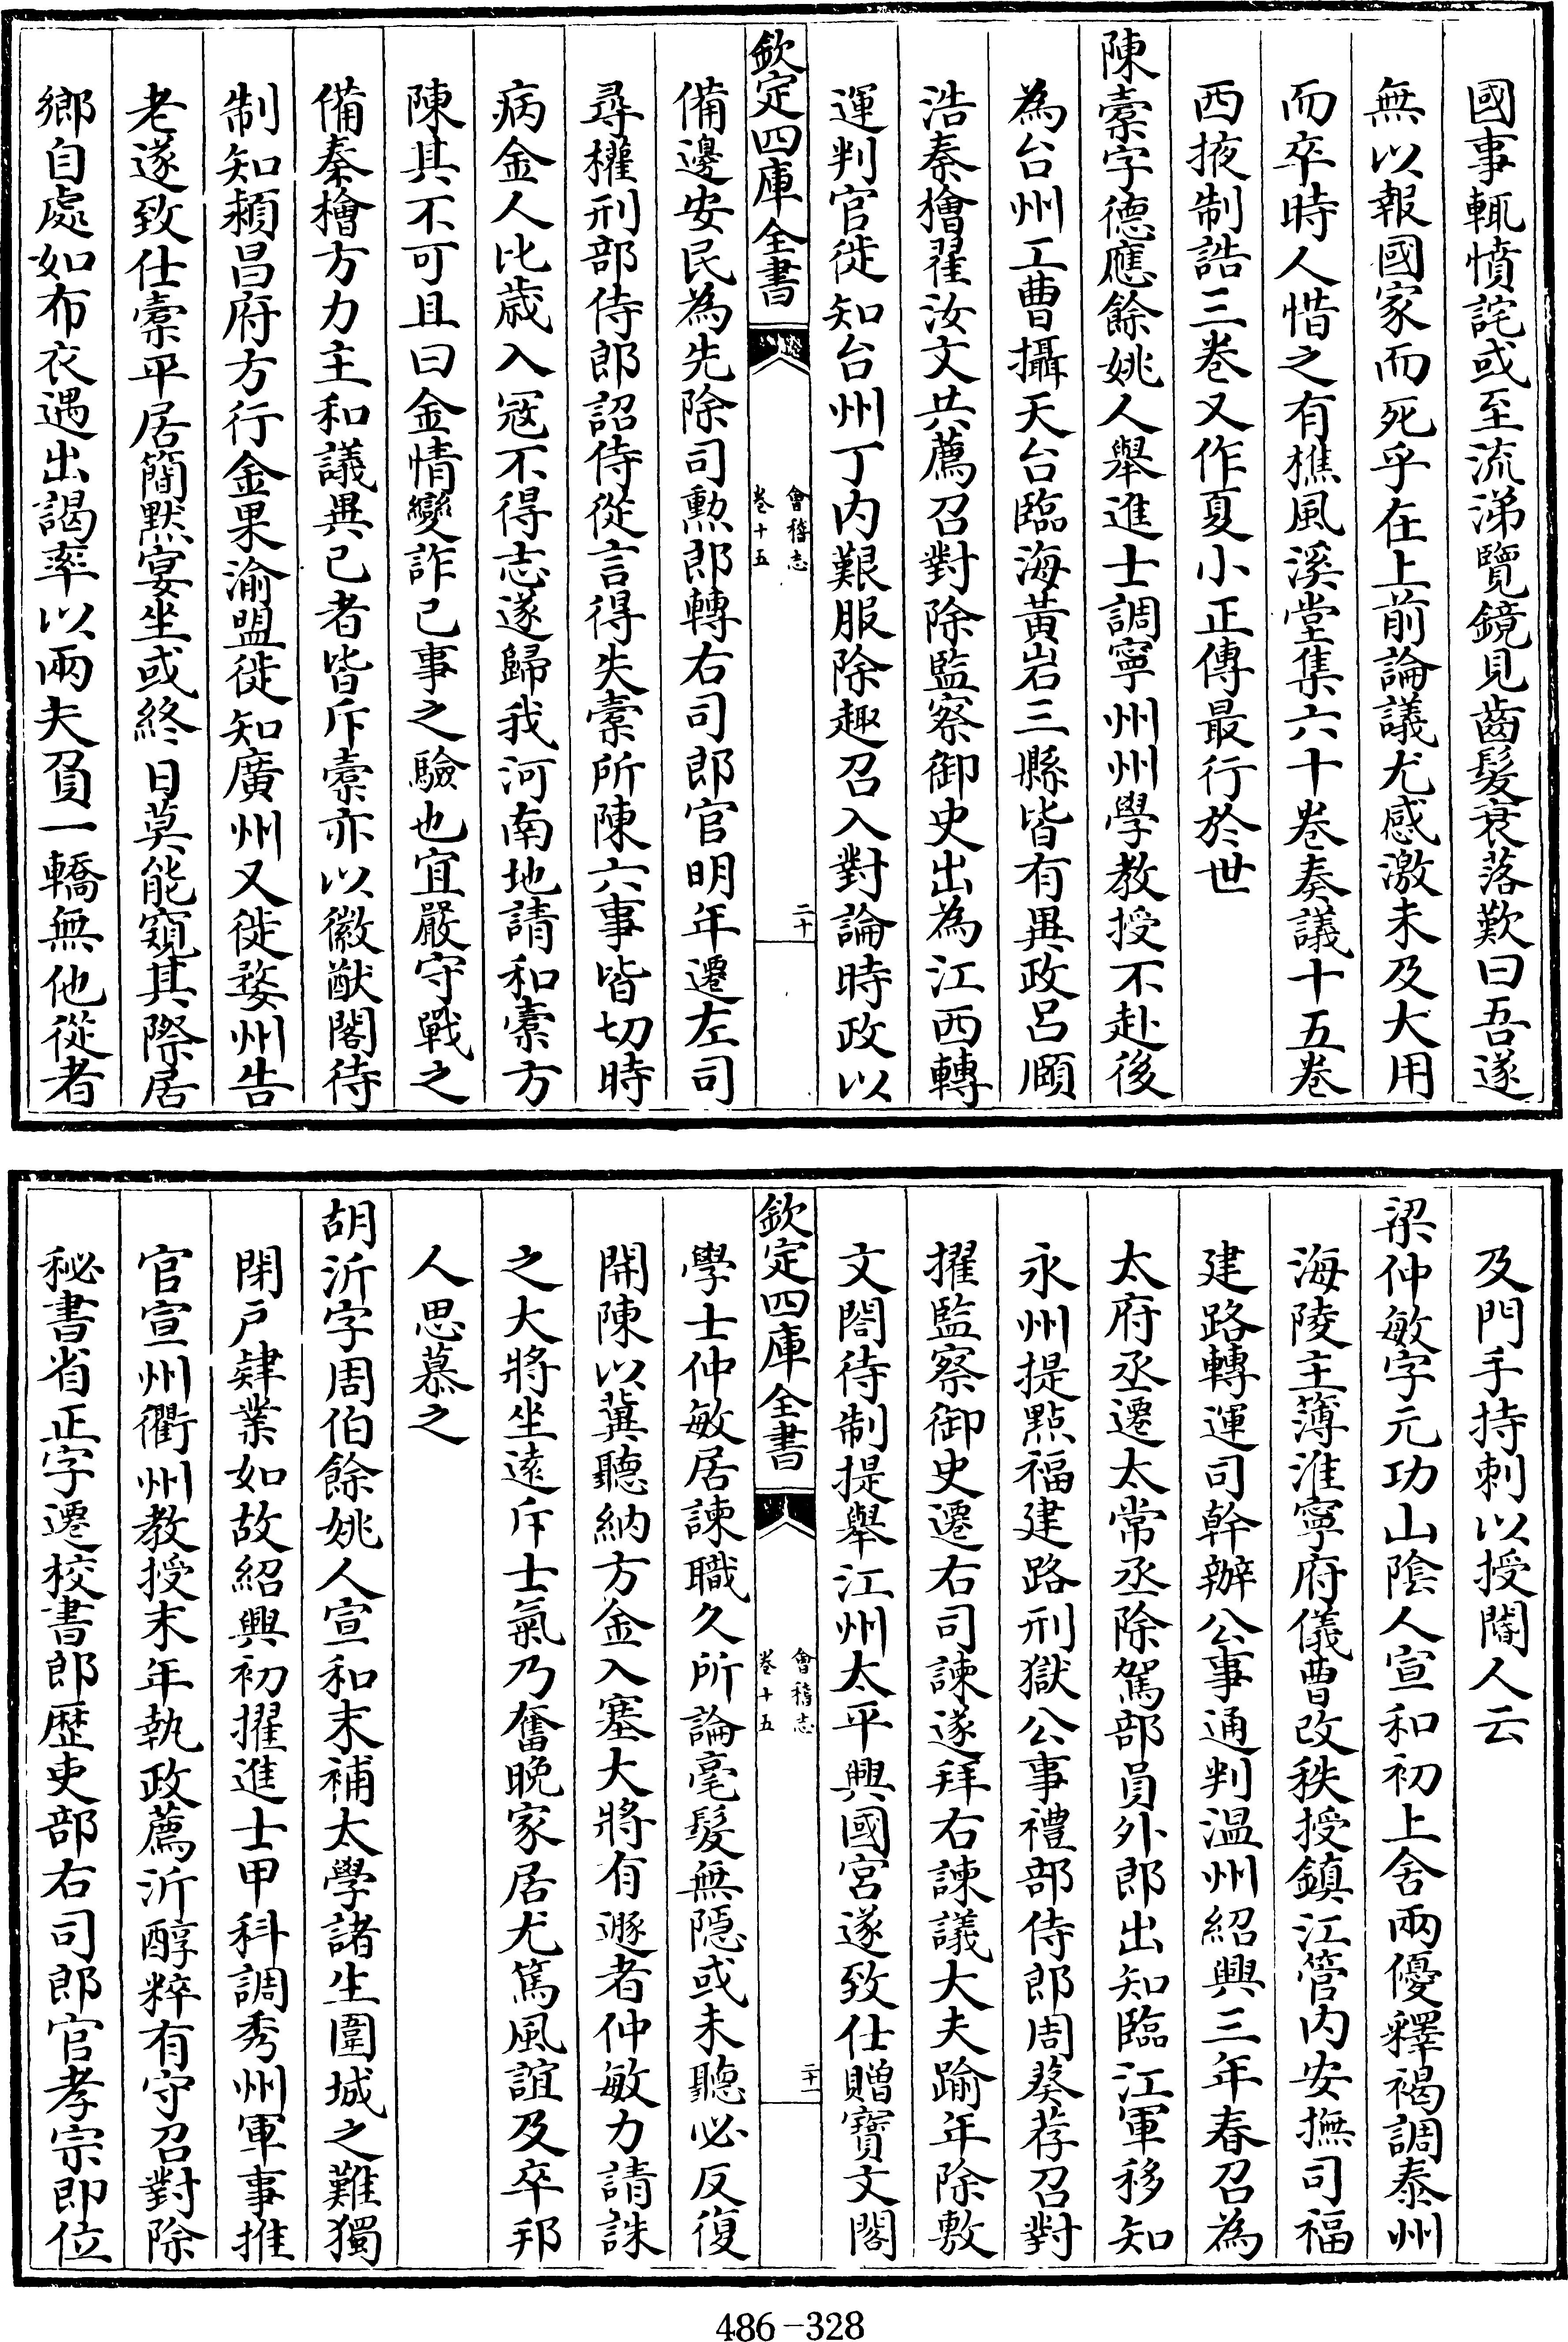 國事輒憤詫或至流涕覽鏡見齒髮衰落歎曰吾遂
無以報國家而死乎在上前論議尤感激未及大用
而卒時人惜之有樵風溪堂集六十卷奏議十五卷
西掖制誥三卷又作夏小正傳最行於世
陳櫜字德應餘姚人舉進士調寧州州學教授不赴後
為台州工曹攝天台臨海黃岩三縣皆有異政呂頤
浩秦檜翟汝文共薦召對除監察御史出為江西轉
運判官徙知台州丁内艱服除趣召入對論時政以
欽定四庫全書
會稽志
卷十五
二十
備邊安民為先除司勲郎轉右司郎官明年遷左司
尋權刑部侍郎詔侍從言得失櫜所陳六事皆切時
病金人比歲入冦不得志遂歸我河南地請和櫜方
陳其不可且曰金情變詐已事之驗也宜嚴守戰之
備秦檜方力主和議異己者皆斥櫜亦以徽猷閣待
制知潁昌府方行金果渝盟徙知廣州又徙婺州告
老遂致仕櫜平居簡默宴坐或終日莫能窺其際居
鄉自處如布衣遇出謁率以兩夫肩一轎無他從者
及門手持刺以授閽人云
梁仲敏字元功山陰人宣和初上舍兩優釋褐調泰州
海陵主簿淮寧府儀曹改秩授鎮江管内安撫司福
建路轉運司幹辦公事通判温州紹興三年春召為
太府丞遷太常丞除駕部員外郎出知臨江軍移知
永州提點福建路刑獄公事禮部侍郎周葵荐召對
擢監察御史遷右司諫遂拜右諫議大夫踰年除敷
文閣待制提舉江州太平興國宮遂致仕贈寶文閣
欽定四庫全書
會稽志
卷十五
二十一
學士仲敏居諫職久所論毫髮無隱或未聽必反復
開陳以冀聽納方金入塞大將有遯者仲敏力請誅
之大將坐逺斥士氣乃奮晩家居尤篤風誼及卒邦
人思慕之
胡沂字周伯餘姚人宣和末補太學諸生圍城之難獨
閉戸肄業如故紹興初擢進士甲科調秀州軍事推
官宣州衢州教授末年執政薦沂醇粹有守召對除
秘書省正字遷校書郎歴吏部右司郎官孝宗即位
486-328